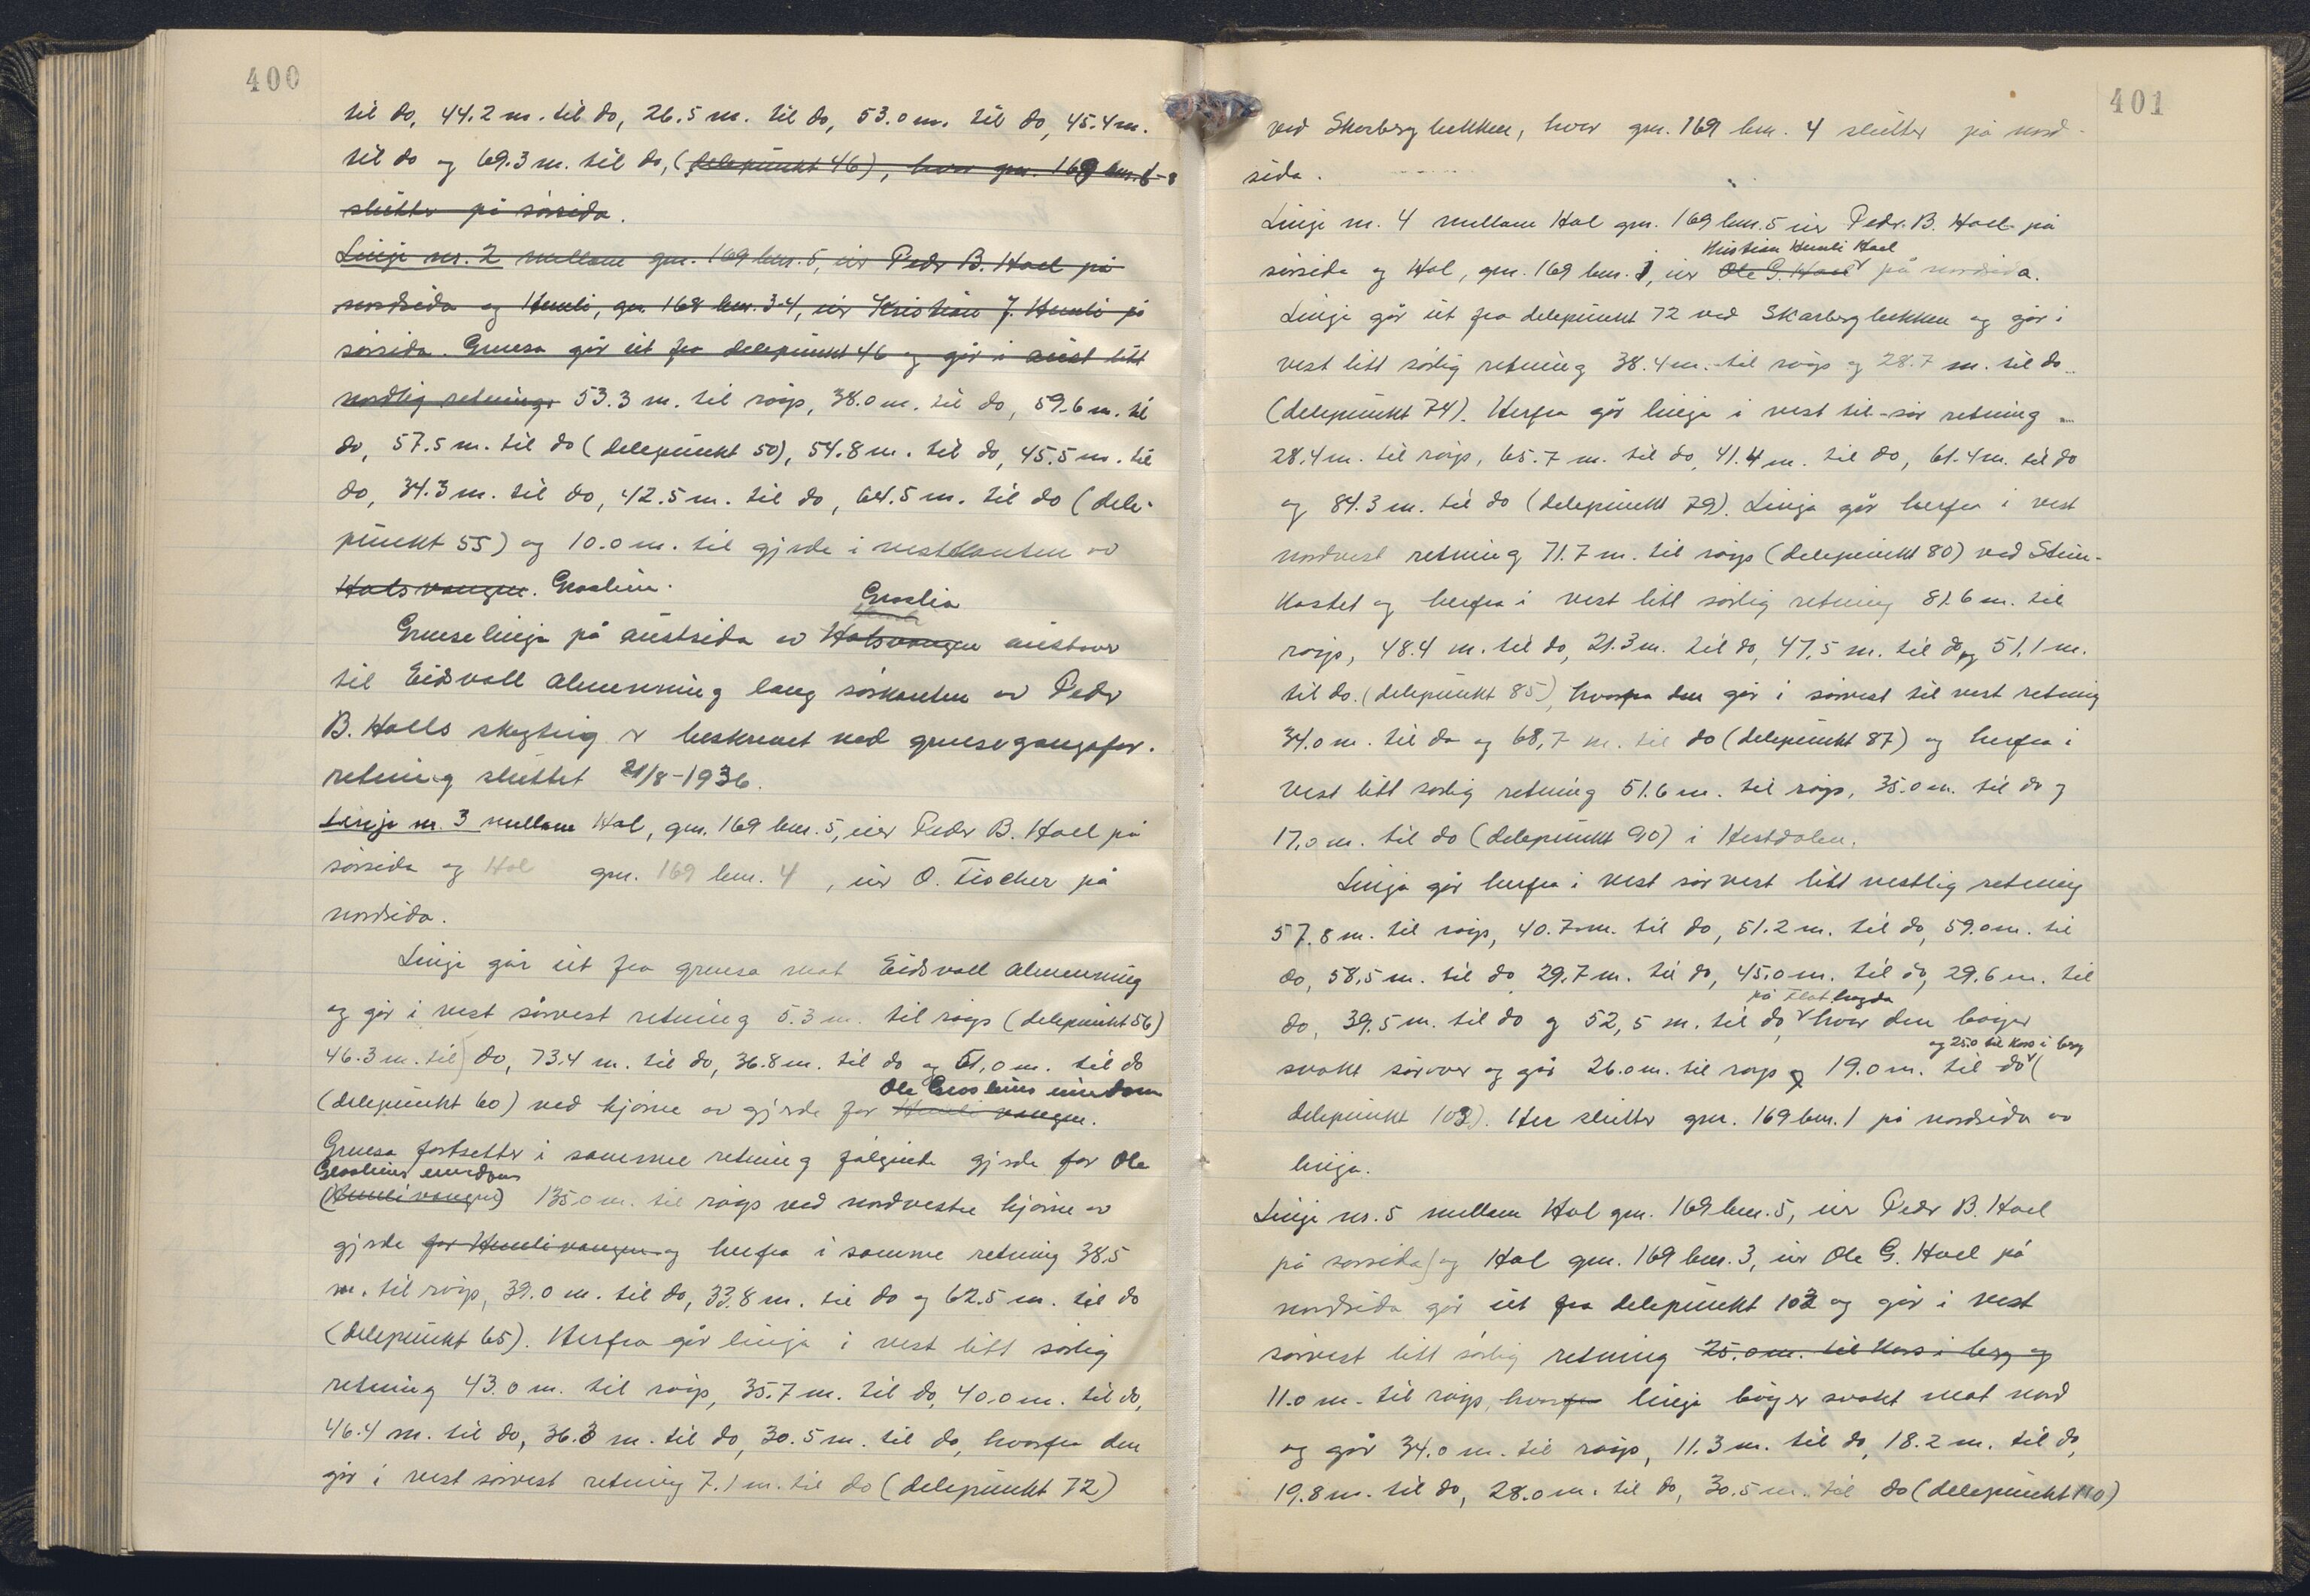 400
til do, 44.2 m. til do, 26.5 m. til do, 53.0 m. til do, 45.4 m.
til do og 69.3 m. til do, (delepunkt 46), hvor gnr. 169 bnr. 6-8
slutter på sørsida.
Linje nr. 2 mellem gnr. 169 bnr. 5, eier Peder B. Hoel på
nordsida og Humli, gnr. 168 bnr. 3-4, eier Kristian J. Humli på
sørsida. Grensa går ut fra delepunkt 46 og går i aust litt
nordlig retning: 53.3 m. til røys, 38.0 m. til do, 59.6 m. til
do, 57.5 m. til do (delepunkt 50), 54.8 m. til do, 45.5 m. til
do, 34.3 m. til do, 42.5 m. til do, 64.5 m. til do (dele-
punkt 55) og 10.0 m. til gjerde i vestkanten av
Holsvangen. Graslien.
Graslia
Grenselinja på austsida av Holsvangen austover
til Eidsvoll Almenning lang sørkanten av Peder
B. Hoels skogteig er beskrevet ved grensegangsfor-
retning sluttet 21/8-1936.
Linje nr. 3 mellem Hol, gnr. 169 bnr. 5, eier Peder B. Hoel på
sørsida og Hol gnr. 169 bnr. 4, eier O. Fischer på
nordsida.
Linja går ut fra grensa mot Eidsvoll Almenning
og går i vest sørvest retning 5.3 m. til røys (delepunkt 56)
46.3 m. til do, 73.4 m. til do, 36.8 m. til do og 51.0 m. til do
Ole Grasliens eiendom
(delepunkt 60) ved hjørne av gjerde for Humli vangen.
Grensa fortsetter i samme retning følgende gjerde for Ole
Grasliens eiendom
(Humlivangen) 135.0 m. til røys ved nordvestre hjørne av
gjerde for Humlivangen og herfra i samme retning 38.5
m. til røys, 39.0 m. til do, 33.8 m. til do og 62.5 m. til do
(delepunkt 65). Herfra går linja i vest litt sørlig
retning 43.0 m. til røys, 35.7 m. til do, 40.0 m. til do,
46.4 m. til do, 36.3 m. til do, 30.5 m. til do, hvorfra den
går i vest sørvest retning 7.1 m. til do (delepunkt 72)
401
ved Skarbergbekken, hvor gnr. 169 bnr. 4 slutter på nord-
sida.
Linje nr. 4 mellem Hol gnr. 169 bnr. 5 eier Peder B. Hoel på
Kristian Humli Hoel
sørsida og Hol, gnr. 169 bnr. 1, eier Ole G. Hoel på nordsida.
Linja går ut fra delepunkt 72 ved Skarbergbekken og går i
vest litt sørlig retning 38.4 m. til røys og 28.7 m. til do
(delepunkt 74). Herfra går linja i vest til sør retning
28.4 m. til røys, 65.7 m. til do, 41.4 m. til do, 61.4 m. til do
og 84.3 m. til do (delepunkt 79). Linja går herfra i vest
nordvest retning 71.7 m. til røys (delepunkt 80) ved Stein-
kastet og herfra i vest litt sørlig retning 81.6 m. til
røys, 48.4 m. til do, 21.3 m. til do, 47.5 m. til do og 51.1 m.
til do. (delepunkt 85), hvorfra den går i sørvest til vest retning
34.0 m. til do og 68,7 m. til do (delepunkt 87) og herfra i
vest litt sørlig retning 51.6 m. til røys, 35.0 m. til do og
17.0 m. til do (delepunkt 90) i Hestdalen.
Linja går herfra i vest sørvest litt vestlig retning
57.8 m. til røys, 40.7 m. til do, 51.2 m. til do, 59.0 m. til
do, 58.5 m. til do, 29.7 m. til do, 45.0 m. til do, 29.6 m. til
på Flathøgda
do, 39.5 m. til do og 52,5 m. til do, hvor den bøyer
og 25.0 til kors i berg
svakt sørover og går 26.0 m. til røys og 19.0 m. til do (
delepunkt 103). Her slutter gnr. 169 bnr. 1 på nordsida av
linja.
Linje nr. 5 mellem Hol gnr. 169 bnr. 5, eier Peder B. Hoel
på sørsida og Hol gnr. 169 bnr. 3, eier Ole G. Hoel på
nordsida går ut fra delepunkt 103 og går i vest
sørvest litt sørlig retning 25.0 m. til kors i berg og
11.0 m. til røys, hvorfra linja bøyer svakt mot nord
og går 34.0 m. til røys, 11.3 m. til do, 18.2 m. til do,
19.8 m. til do, 28.0 m. til do, 30.5 m. til do (delepunkt 110)